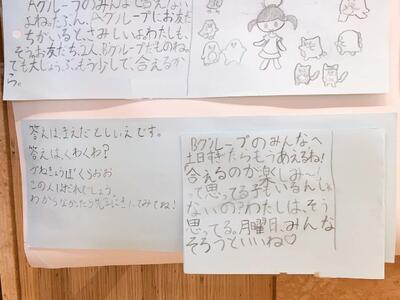 Aグループのみんなも会えない
よねたぶん、Aグループにお友だ
ちがいるとさみしいよ。わたしも、
そうお友だち、2人、Bグループだものね。
でも大しょうぶ。もう少しで、会えるか
ら。
答えは、きえだとしいえです。
答えは、くわくわ?
この人はだれでしょう。
わからなかったら先生にきいてみてね!
Bグループのみんなへ
土日すぎたらもうあえるね!
会えるのが楽しみ〜!
って思ってる子もいるんじゃ
ないの?わたしは、そう
思ってる。月曜日、みんな
そろうといいね♡